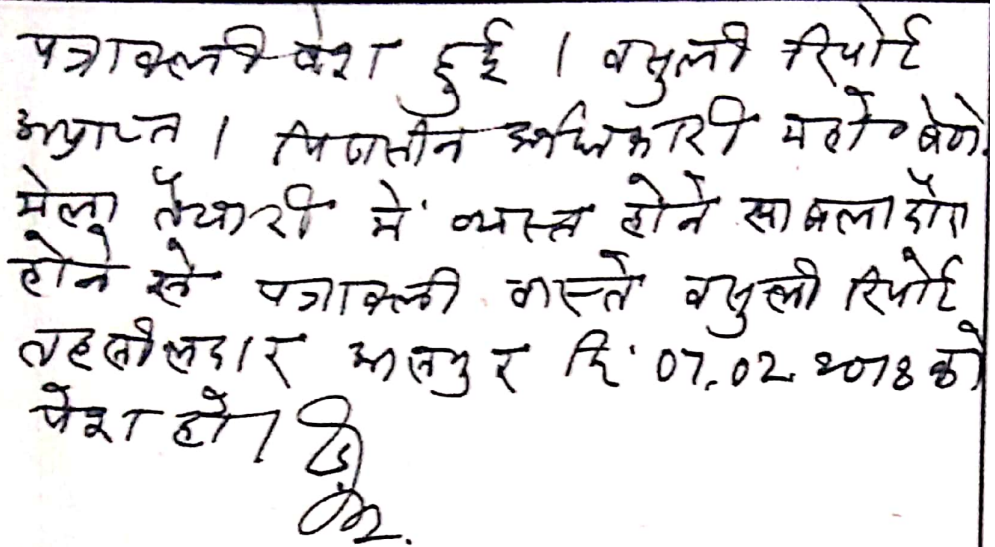 पत्रावली पेश हुई । वसुली रिपोर्ट
अप्राप्त । पिठासीन अधिकारी महो० बेणे.
मेला तैयारी मे व्यस्त होने
होने से पत्रावली वास्ते वसुली रिपोर्ट
तहसीलदार आसपुर दि. 07.02.2018 को
पेश हो।